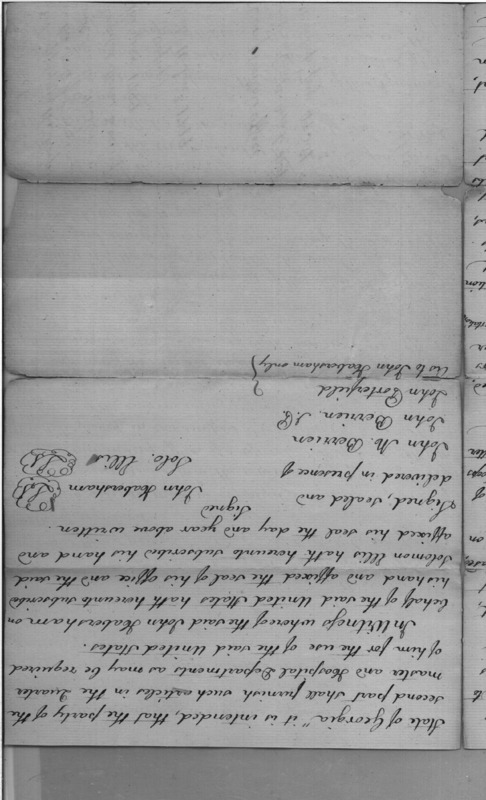 State of Georgia" it is intended, that the party of the
second part shall furnish such articles in the Quarter
master and Hospital Departments as may be required
of him for the use of the said United States.
In Witness whereof the said John Habersham on
behalf of the said United States hath hereunto subscribed
his hand and affixed the seal of his office and the said
Solomon Ellis hath hereunto subscribed his hand and
affixed his seal the day and year above written.
Signed
Signed, sealed and
delivered in presence of
John Habersham LS
Solo. Ellis LS
John M. Berrien
John Berrien, J.P.
John Porterfield
As to John Habersham only